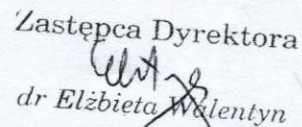 Zastępca Dyrektora
dr Elżbieta Walentyn